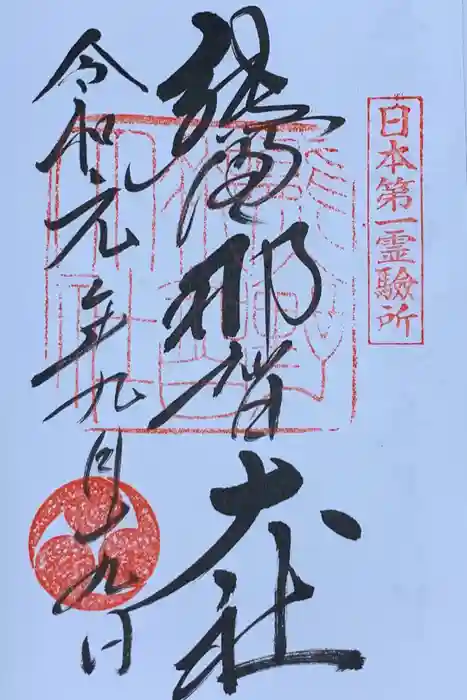 日本第一霊驗所
熊野那智大社
令和元年九月廿九日